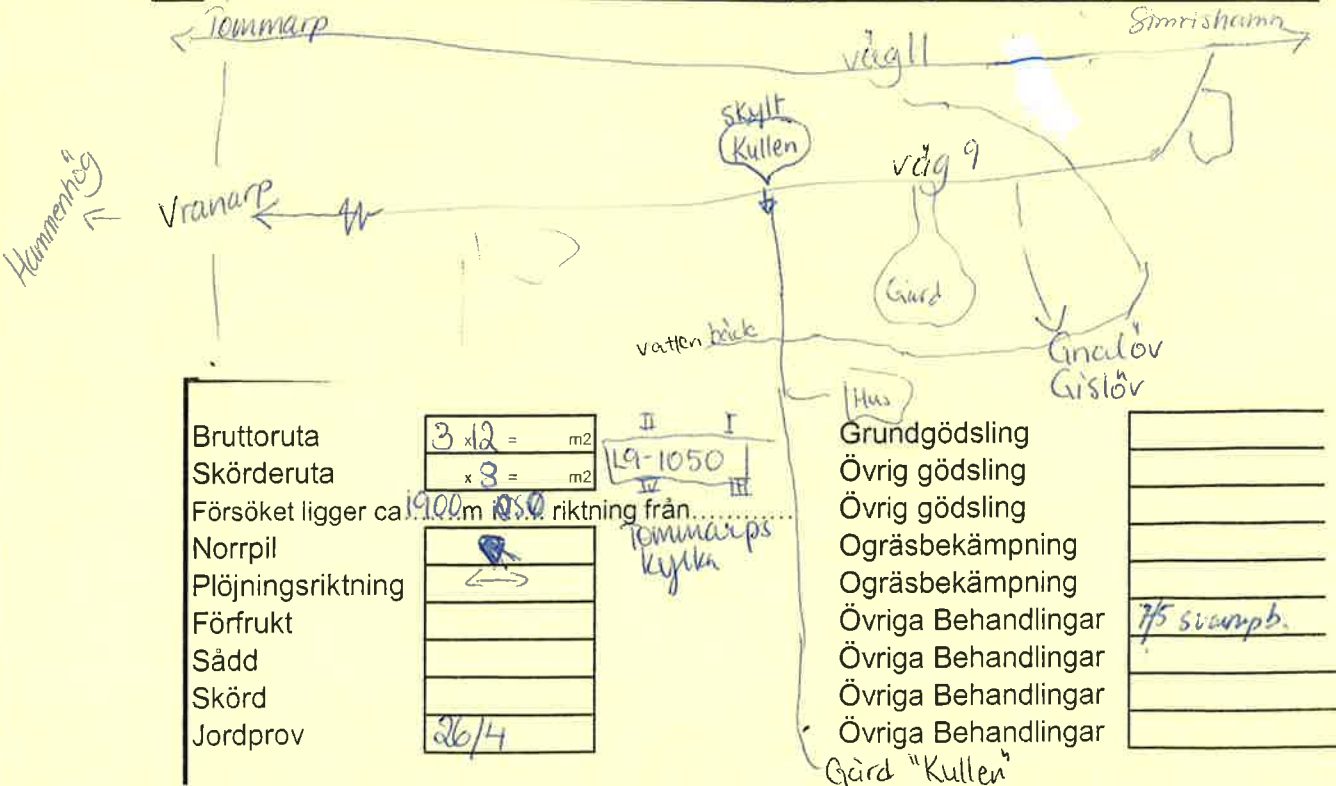 Tommarp
Simrishamn
väg 11
skylt
Kullen
väg 9
Hammenhög
Vranarp
Gård
vatten bäck
Gnalöv
Gislöv
Hus
Bruttoruta 3 x12 = m2
II I
L9-1050
IV III
Skörderuta x 8 = m2
Försöket ligger ca 1900 m i OSO riktning från
Tommarps
kyrka
Norrpil
Plöjningsriktning
Förfrukt
Sådd
Skörd
Jordprov 26/4
Grundgödsling
Övrig gödsling
Övrig gödsling
Ogräsbekämpning
Ogräsbekämpning
Övriga Behandlingar 7/5 svampb.
Övriga Behandlingar
Övriga Behandlingar
Övriga Behandlingar
Gård "Kullen"